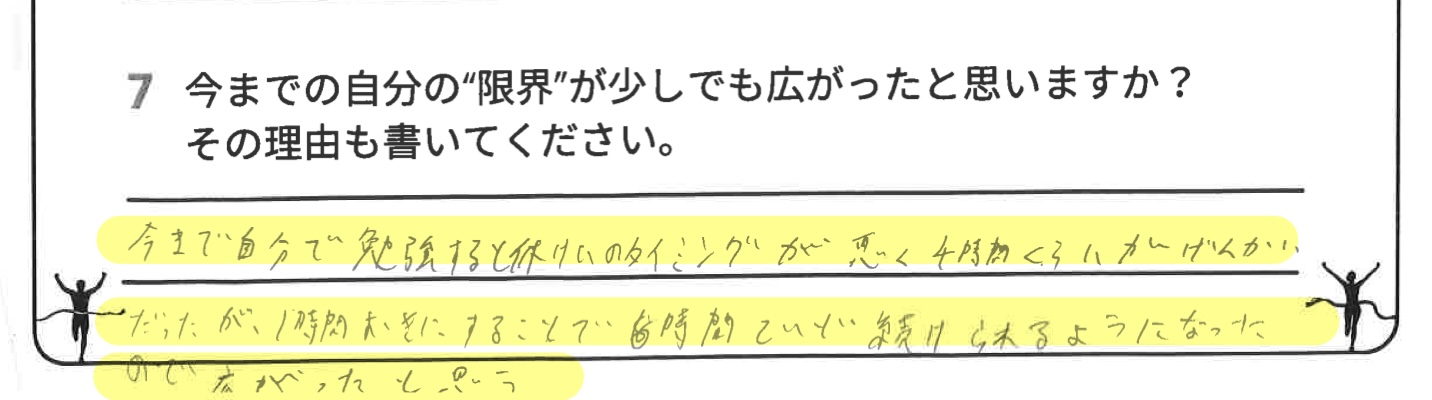 7 今までの自分の“限界”が少しでも広がったと思いますか？
その理由も書いてください。
今まで自分で勉強すると休けいのタイミングが悪く4時間くらいがげんかい
だったが、1時間おきにすることで6時間ていど続けられるようになった
ので広がったと思う